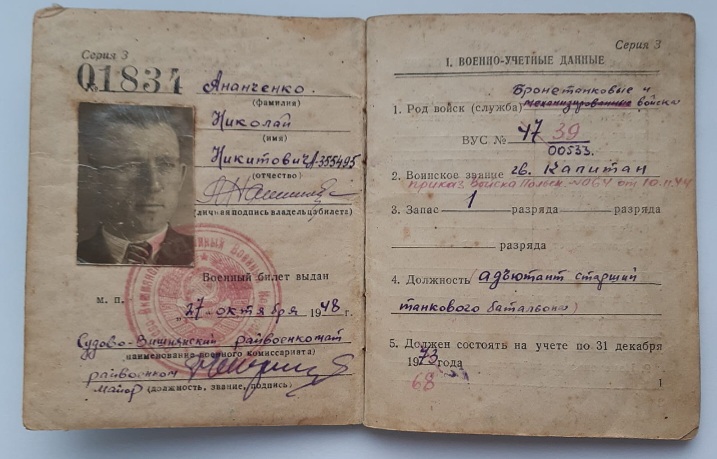 Серия З
01834
Ананченко.
(фамилия)
Николай
(имя)
Никитович А355495
(отчество)
(личная подпись владельца билета)
Военный билет выдан
М. П. „27" октября 1948 г.
Судово-Вишнянский райвоенкомат
наименование военного комиссариата)
райвоенком
майор (должность, звание, подпись)
Серия З
I. ВОЕННО-УЧЕТНЫЕ ДАННЫЕ
Бронетанковые и
1. Род войск (служба) механизированные войска
ВУС № 47 39
00533.
2. Воинское звание гв. Капитан
приказ Войска Польск. от 10.11.44
3. Запас 1 разряда разряда
разряда
4. Должность (адъютант старший
танкового батальона)
5. Должен состоять на учете по 31 декабря
1973 года
68
1